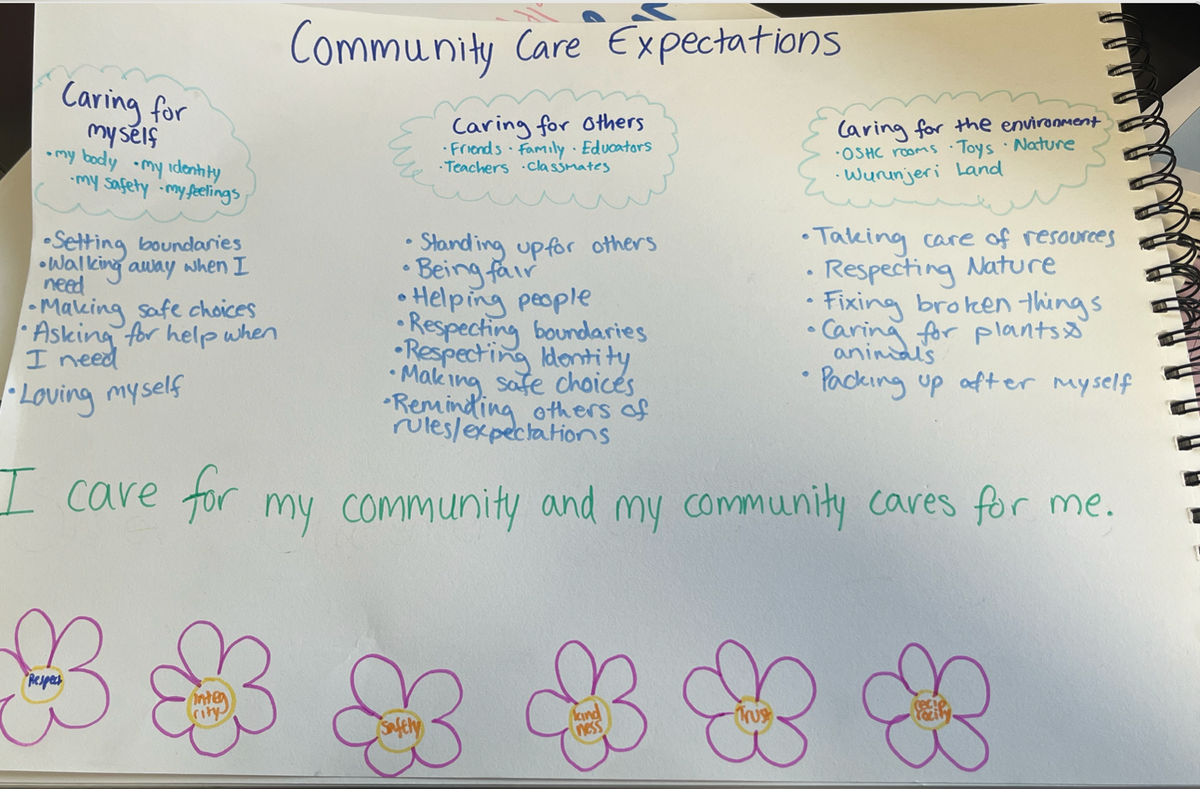 Community Care Expectations
Caring for
myself
• my body • my identity
• my safety • my feelings
• Setting boundaries
• Walking away when I
need
• Making safe choices
• Asking for help when
I need
• Loving myself
Caring for others
• Friends • Family • Educators
• Teachers • Classmates
• Standing up for others
• Being fair
• Helping people
• Respecting boundaries
• Respecting Identity
• Making safe choices
• Reminding others of
rules/expectations
Caring for the environment
• OSHC rooms • Toys • Nature
• Wurunjeri Land
• Taking care of resources
• Respecting Nature
• Fixing broken things
• Caring for plants &
animals
• Packing up after myself
I care for my community and my community cares for me.
Respect
Integ
rity
Safety
kind
ness
Trust
recip
rocity